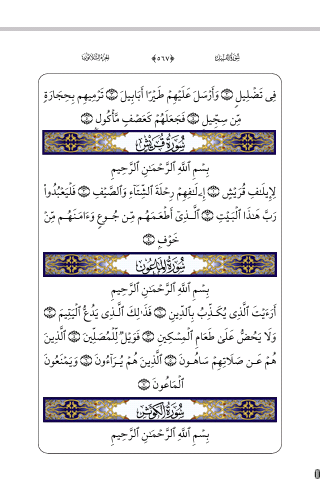 سُورَةُ الفِيلِ ﴿٥٦٧﴾ الجُزءُ الثَّلَاثُونَ
فِى تَضْلِيلٍ ۝ وَأَرْسَلَ عَلَيْهِمْ طَيْرًا أَبَابِيلَ ۝ تَرْمِيهِم بِحِجَارَةٍ
مِّن سِجِّيلٍ ۝ فَجَعَلَهُمْ كَعَصْفٍ مَّأْكُولٍ ۝
سُورَةُ قُرَيْشٍ
بِسْمِ اللَّهِ الرَّحْمَٰنِ الرَّحِيمِ
لِإِيلَٰفِ قُرَيْشٍ ۝ إِۦلَٰفِهِمْ رِحْلَةَ الشِّتَآءِ وَالصَّيْفِ ۝ فَلْيَعْبُدُوا۟
رَبَّ هَٰذَا الْبَيْتِ ۝ الَّذِىٓ أَطْعَمَهُم مِّن جُوعٍ وَءَامَنَهُم مِّنْ
خَوْفٍۭ ۝
سُورَةُ المَاعُونِ
بِسْمِ اللَّهِ الرَّحْمَٰنِ الرَّحِيمِ
أَرَءَيْتَ الَّذِى يُكَذِّبُ بِالدِّينِ ۝ فَذَٰلِكَ الَّذِى يَدُعُّ الْيَتِيمَ ۝
وَلَا يَحُضُّ عَلَىٰ طَعَامِ الْمِسْكِينِ ۝ فَوَيْلٌ لِّلْمُصَلِّينَ ۝ الَّذِينَ
هُمْ عَن صَلَاتِهِمْ سَاهُونَ ۝ الَّذِينَ هُمْ يُرَآءُونَ ۝ وَيَمْنَعُونَ
الْمَاعُونَ ۝
سُورَةُ الكَوْثَرِ
بِسْمِ اللَّهِ الرَّحْمَٰنِ الرَّحِيمِ